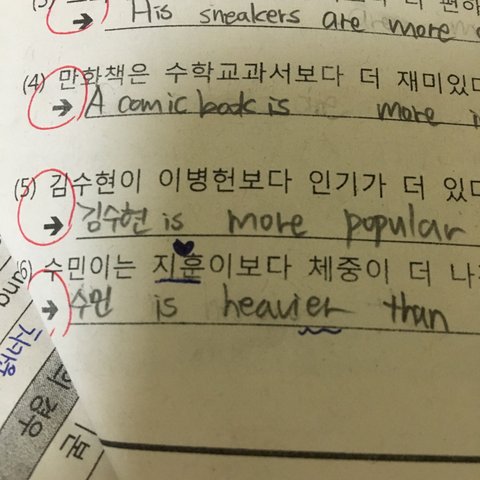 → His sneakers are more
(4) 만화책은 수학교과서보다 더 재미있다
→ A comic book is more
(5) 김수현이 이병헌보다 인기가 더 있다
→ 김수현 is more popular
(6) 수민이는 지훈이보다 체중이 더 나
→ 수민 is heavier than
의 경우
본